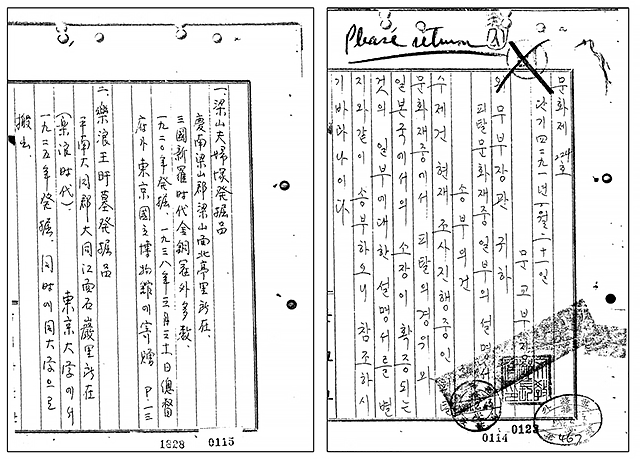 Please return
문화제 호
단기 四二九一년 월 二十一일
문교부장
외무부장관 귀하
피탈문화재중일부의 설명서
송부의 건
수제건 현재 조사진행중인
문화재중에서 피탈의 경위와
일본국에서의 소장이 확증되는
것의 일부에대한 설명서를 별
지와같이 송부하오니 참조하시
기바라나이다
0114
0123
467
一、梁山夫婦塚發掘品
慶南梁山郡梁山面北亭里所在.
三國新羅時代金銅冠外多數.
一九二○年發掘. 一九三八年三月三十日 總督
府外 東京國立博物館에寄贈 P.一三
二、樂浪王盱墓發掘品
平南大同郡大同江面石巖里所在
(樂浪時代) 東京大学에서
一九二五年發掘. 同時에同大学으로
搬出.
1828
0115